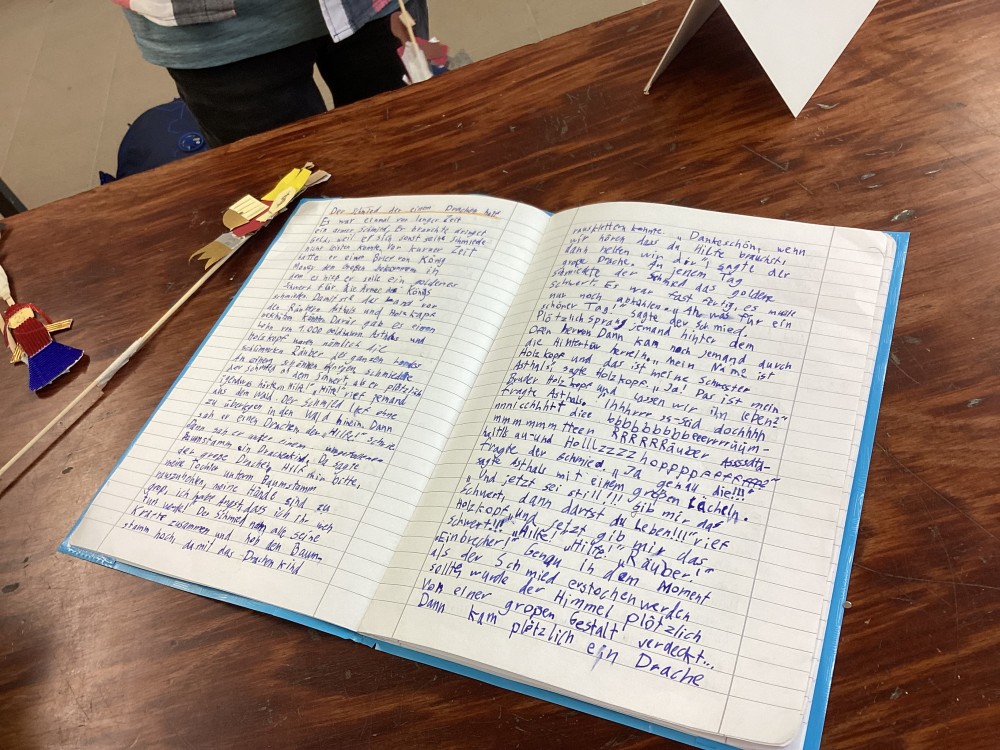 Der Schmied der einen Drachen
Es war einmal vor langer Zeit
ein armer Schmied, Er brauchte dringet
Geld, weil er sich sonst seine Schmiede
nicht leisten konnte. Vor kurzer Zeit
hatte er eine Brief von König
den Großen bekommen in
dem es hieß er solle ein goldener
Schwert für die Armee des Königs
schmieden Damit sie das Land vor
den Räubern Asthals und Holzkopf
Dafür gab es einen
Lohn von 1.000 Asthals und
Holzkopf waren nämlich die
schlimmsten Räuber des ganzen Landes
An einem schönen Morgen schmiedete
der Schmied an dem Schwert, als er plötzlich
irgendwas hörte „Hilfe! „Hilfe rief jemand
aus dem Wald. Der Schmied lief ohne
zu überlegen in den Wald hinein. Dann
sah er einen Drachen der „Hilfe!" schrie
Dann sah er unter einem
Baumstamm ein Drachenkind, Da sagte
der große Drache „Hilf ihm bitte,
meine Tochter unterm Baumstamm
rauszuholen, meine Hände sind zu
groß, ich habe Angst dass ich ihr weh
tun würde!" Der Schmied nahm alle seine
Kräfte zusammen und hob den Baum-
stamm hoch, damit das Drachenkind
rausklettern konnte. „Dankeschön, wenn
wir hören das du Hilfe brauchst,
dann helfen wir dir" sagte der
große Drache. An jenem Tag
schmiedete der Schmied das goldene
Schwert. Er war fast fertig, es musste
nur noch abkühlen „Ahr was für ein
schöner Tag!" sagte der Schmied
Plötzlich sprang jemand hinter dem
Ofen hervor. Dann kam noch jemand durch
die Hintertür herein. „Mein Name ist
Holzkopf und das ist meine Schwester
Asthals, sagte Holzkopf. „Ja! Das ist mein
Bruder Holzkopf und lassen wir ihn leben?"
fragte Asthals. „Ihhhrr ss-seid dochhhh
nnnicchhht diee bbbbbbbbbeeerrrrüüm-
mmmmmtteen RRRRRRäuber
hallls uu-und Hollzzzzzhopppp
fragte der Schmied. „Ja genau die!!!"
sagte Asthals mit einem großen Lächeln.
„Und jetzt sei still!!! Gib mir das
Schwert, dann darfst du Leben!!!" rief
Holzkopf „und jetzt gib mir das
Schwert!!!" „Hilfe!" „Hilfe!" „Räuber!"
„Einbrecher!" Genau in dem Moment
als der Schmied erstochen werden
sollte wurde der Himmel plötzlich
Von einer großen Gestalt verdeckt...
Dann kam plötzlich ein Drache